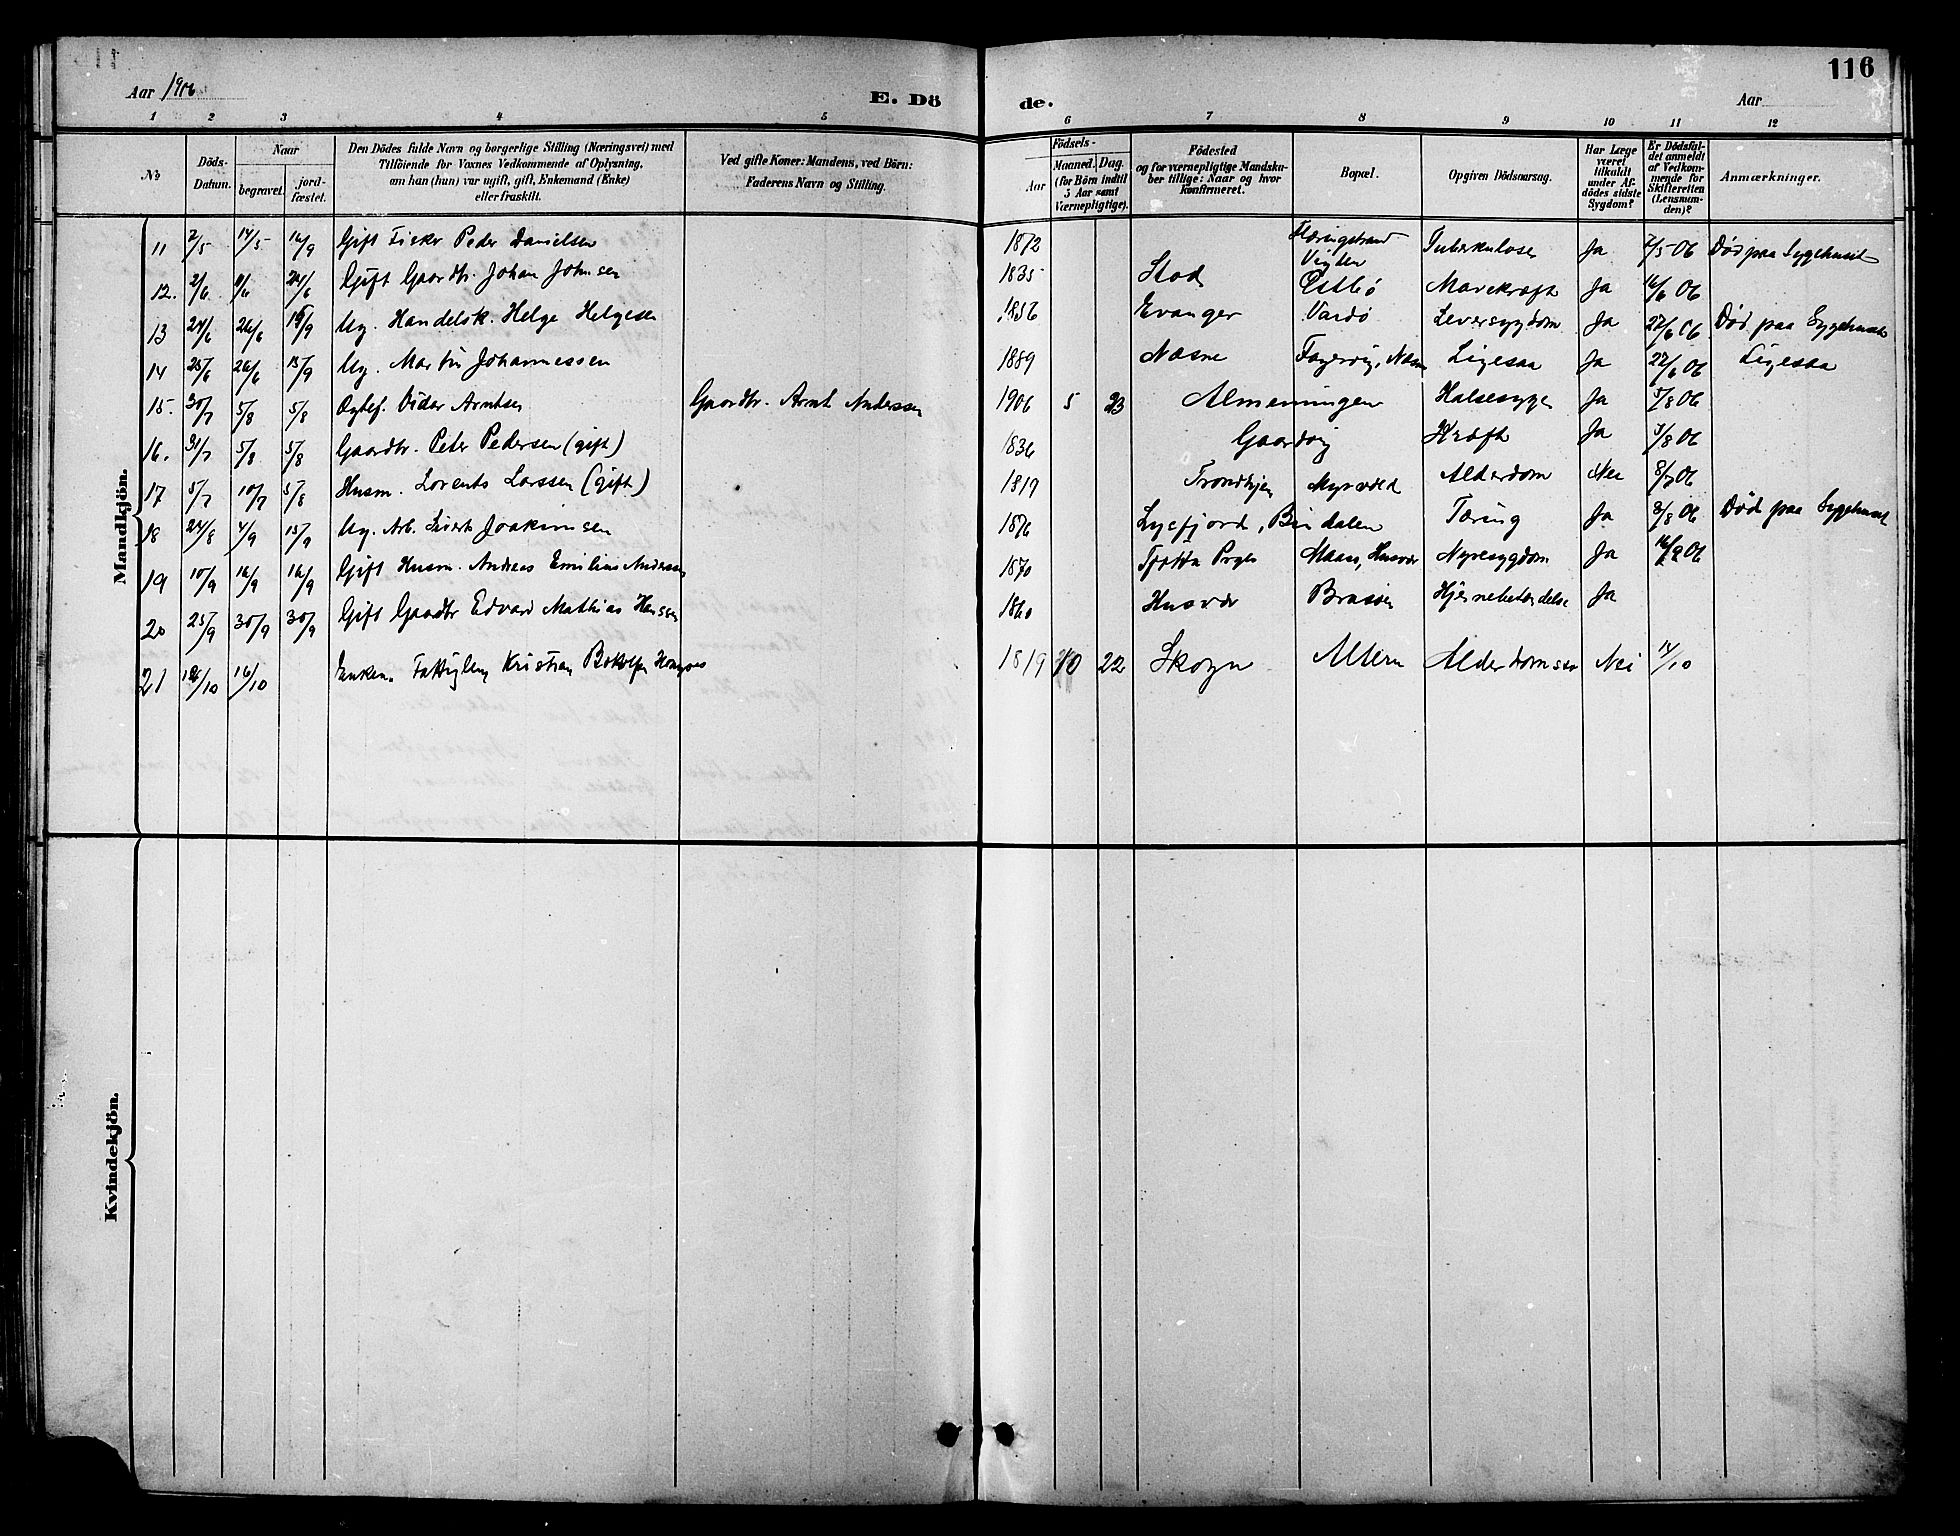 116
Aar 1906
E. Dö
de.
Aar
1 2 3 4 5 6 7 8 9 10 11 12
No
Döds-Datum.
Naar
begravet.
jord-fæstet.
Den Dödes fulde Navn og borgerlige Stilling (Næringsvei) med
Tilföiende for Voxnes Vedkommende af Oplysning,
om han (hun) var ugift, gift, Enkemand (Enke)
eller fraskilt.
Ved gifte Koner: Mandens, ved Börn:
Faderens Navn og Stilling.
Födsels-
Aar
Maaned.
Dag.
(for Börn indtil
5 Aar samt
Værnepligtige).
Födested
og for værnepligtige Mandska-
ber tillige: Naar og hvor
konfirmeret.
Bopæl.
Opgiven Dödsaarsag.
Har Læge
været
tilkaldt
under Af-
dödes sidste
Sygdom?
Er Dödsfal-
det anmeldt
af Vedkom-
mende for
Skifteretten
(Lensman-
den)?
Anmærkninger.
Mandkjön.
11 2/5 14/5 16/9 Gift Fisker Peder Danielsen 1872 Vigten Tuberkulose Ja 7/5 06 Død paa Sygehuset
12. 2/6 9/6 24/6 Gift Gaardbr. Johan Johnsen 1835 Stod Østbø Mavekræft Ja 16/6 06
13 24/6 26/6 16/9 Ug. Handelsk. Helge Helgesen 1856 Evanger Vardø Leversygdom Ja 27/6 06 Død paa Sygehuset
14 25/6 26/6 13/9 Ug. Martin Johannessen 1889 Næsne Fagervig, Næsne Ligesaa Ja 27/6 06 Ligesaa
15. 30/7 5/8 5/8 Ægtef. Vidar Arntsen Gaardbr. Arnt Anderssen 1906 5 23 Almenningen Halsesyge Ja 5/8 06
16. 31/7 5/8 5/8 Gaardbr. Peter Pedersen (gift) 1836 Gaardvig Kræft Ja 5/8 06
17 5/7 10/7 5/8 Husm. Lorents Larssen (gift) 1819 Trondhjem Alderdom Nei 8/7 06
18 24/8 4/9 13/9 Ug. Arb. Sivert Joakimsen 1876 Lysfjord, Bindalen Tæring Ja 3/8 06 Død paa Sygehuset
19 10/9 16/9 16/9 Gift Husm. Andreas Emilius Andersen 1870 Tjøtta Prgld Maas, Husvær Nyresygdom Ja 16/9 06
20 25/9 30/9 30/9 Gift Gaardbr Edvard Mathias Hansen 1860 Husvær Brasøen Hjernebetændelse Ja
21 12/10 16/10 Enkem. Fattiglem Kristian 1819 10 22 Skogn Altern Alderdomssv Nei 14/10
Kvindekjön.